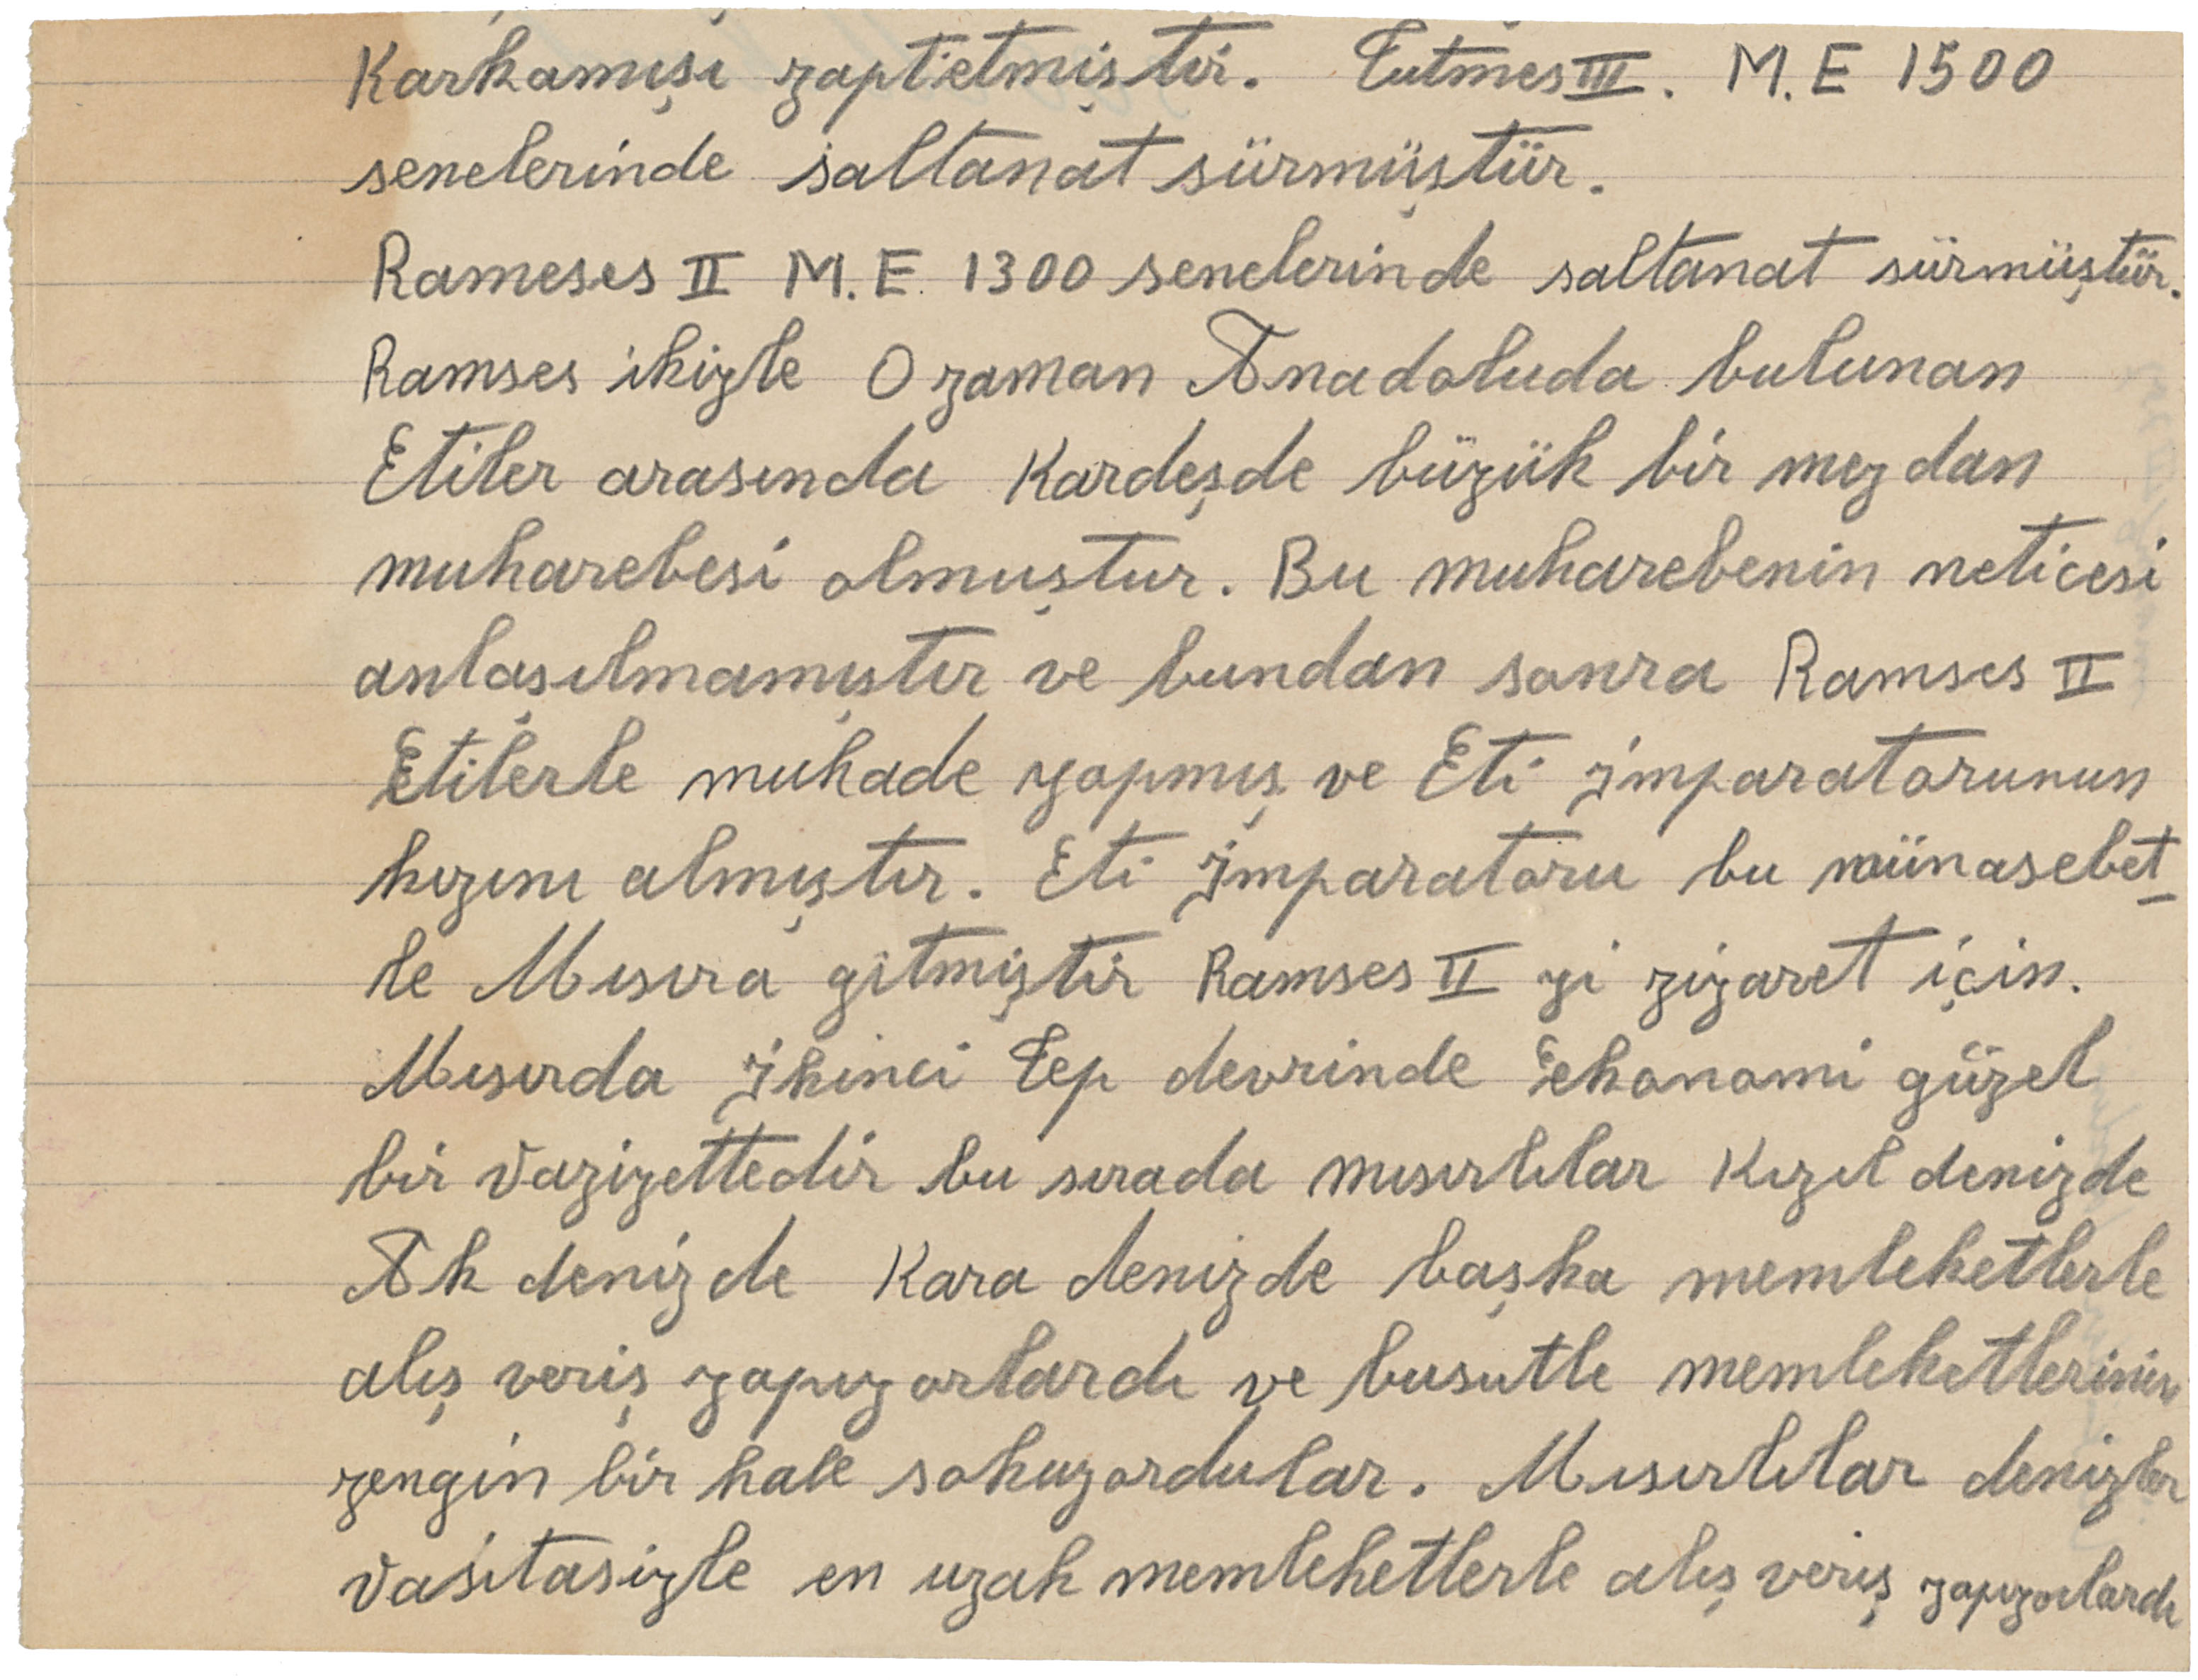 Karkamışı zaptetmiştir. Tutmes III. M.E 1500
senelerinde saltanat sürmüştür.
Rameses II M.E. 1300 senelerinde saltanat sürmüştür.
Ramses ikiyle O zaman Anadoluda bulunan
Etiler arasında Kardeşde büyük bir meydan
muharebesi olmuştur. Bu muharebenin neticesi
anlaşılmamıştır ve bundan sonra Ramses II
Etilerle muhade yapmış ve Eti İmparatorunun
kızını almıştır. Eti İmparatoru bu münasebet-
le Mısıra gitmiştir Ramses II yi ziyaret için.
Mısırda İkinci Tep devrinde Ekonomi güzel
bir vaziyettedir bu sırada mısırlılar Kızıl denizde
Ak denizde Kara denizde başka memleketlerle
alış veriş yapıyorlardı ve busutle memleketlerinin
zengin bir hale sokuyordular. Mısırlılar denizler
vasıtasiyle en uzak memleketlerle alış veriş yapıyorlardı